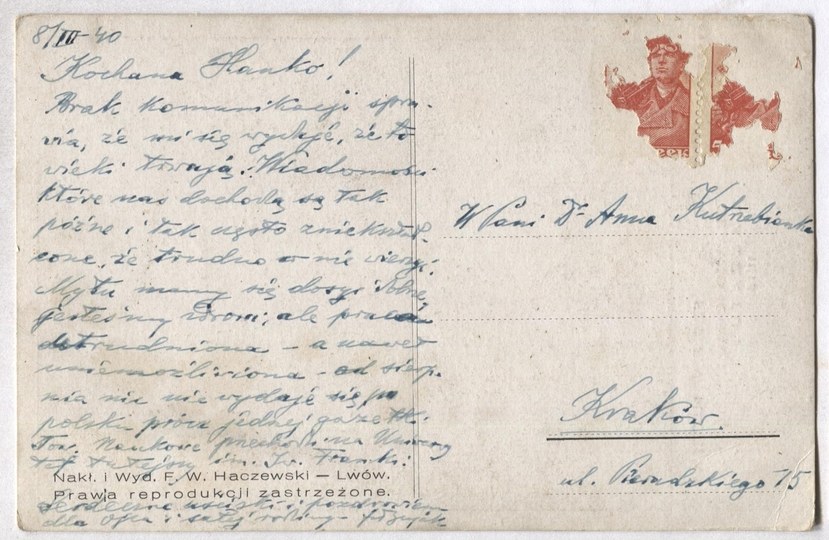 8/III 40
Kochana Hanko!
Brak komunikacji spra-
wia, że mi się wydaje, że to
wieki trwają. Wiadomości
które nas dochodzą są tak
późne i tak często zniekształ-
cone, że trudno w nie wierzyć.
My tu mamy się dosyć dobrze,
jesteśmy zdrowi, ale praca
utrudniona – a nawet
uniemożliwiona – od sierp-
nia nic nie wydaje się po
polsku prócz jednej gazetki.
Tow. Naukowe na
tutejszy im. Iw. Franki.
Nakł. i Wyd. F. W. Haczewski — Lwów.
Prawja reprodukcji zastrzeżone.
Serdeczne uściski i pozdrowienia
dla Ojca i całej rodziny
W Pani Dr Anna Kutrzebianka
Kraków.
ul. 15